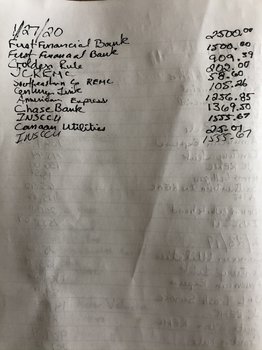 1/27/20
First Financial Bank 2500.00
First Financial Bank 1500.00
Golden Rule 909.39
JCREMC 202.00
Southeastern REMC 58.60
Century Link 105.26
American Express 1256.85
Chase Bank 1369.50
INSCCU 1555.67
Canaan Utilities 25.09
INSCCU 1555.67